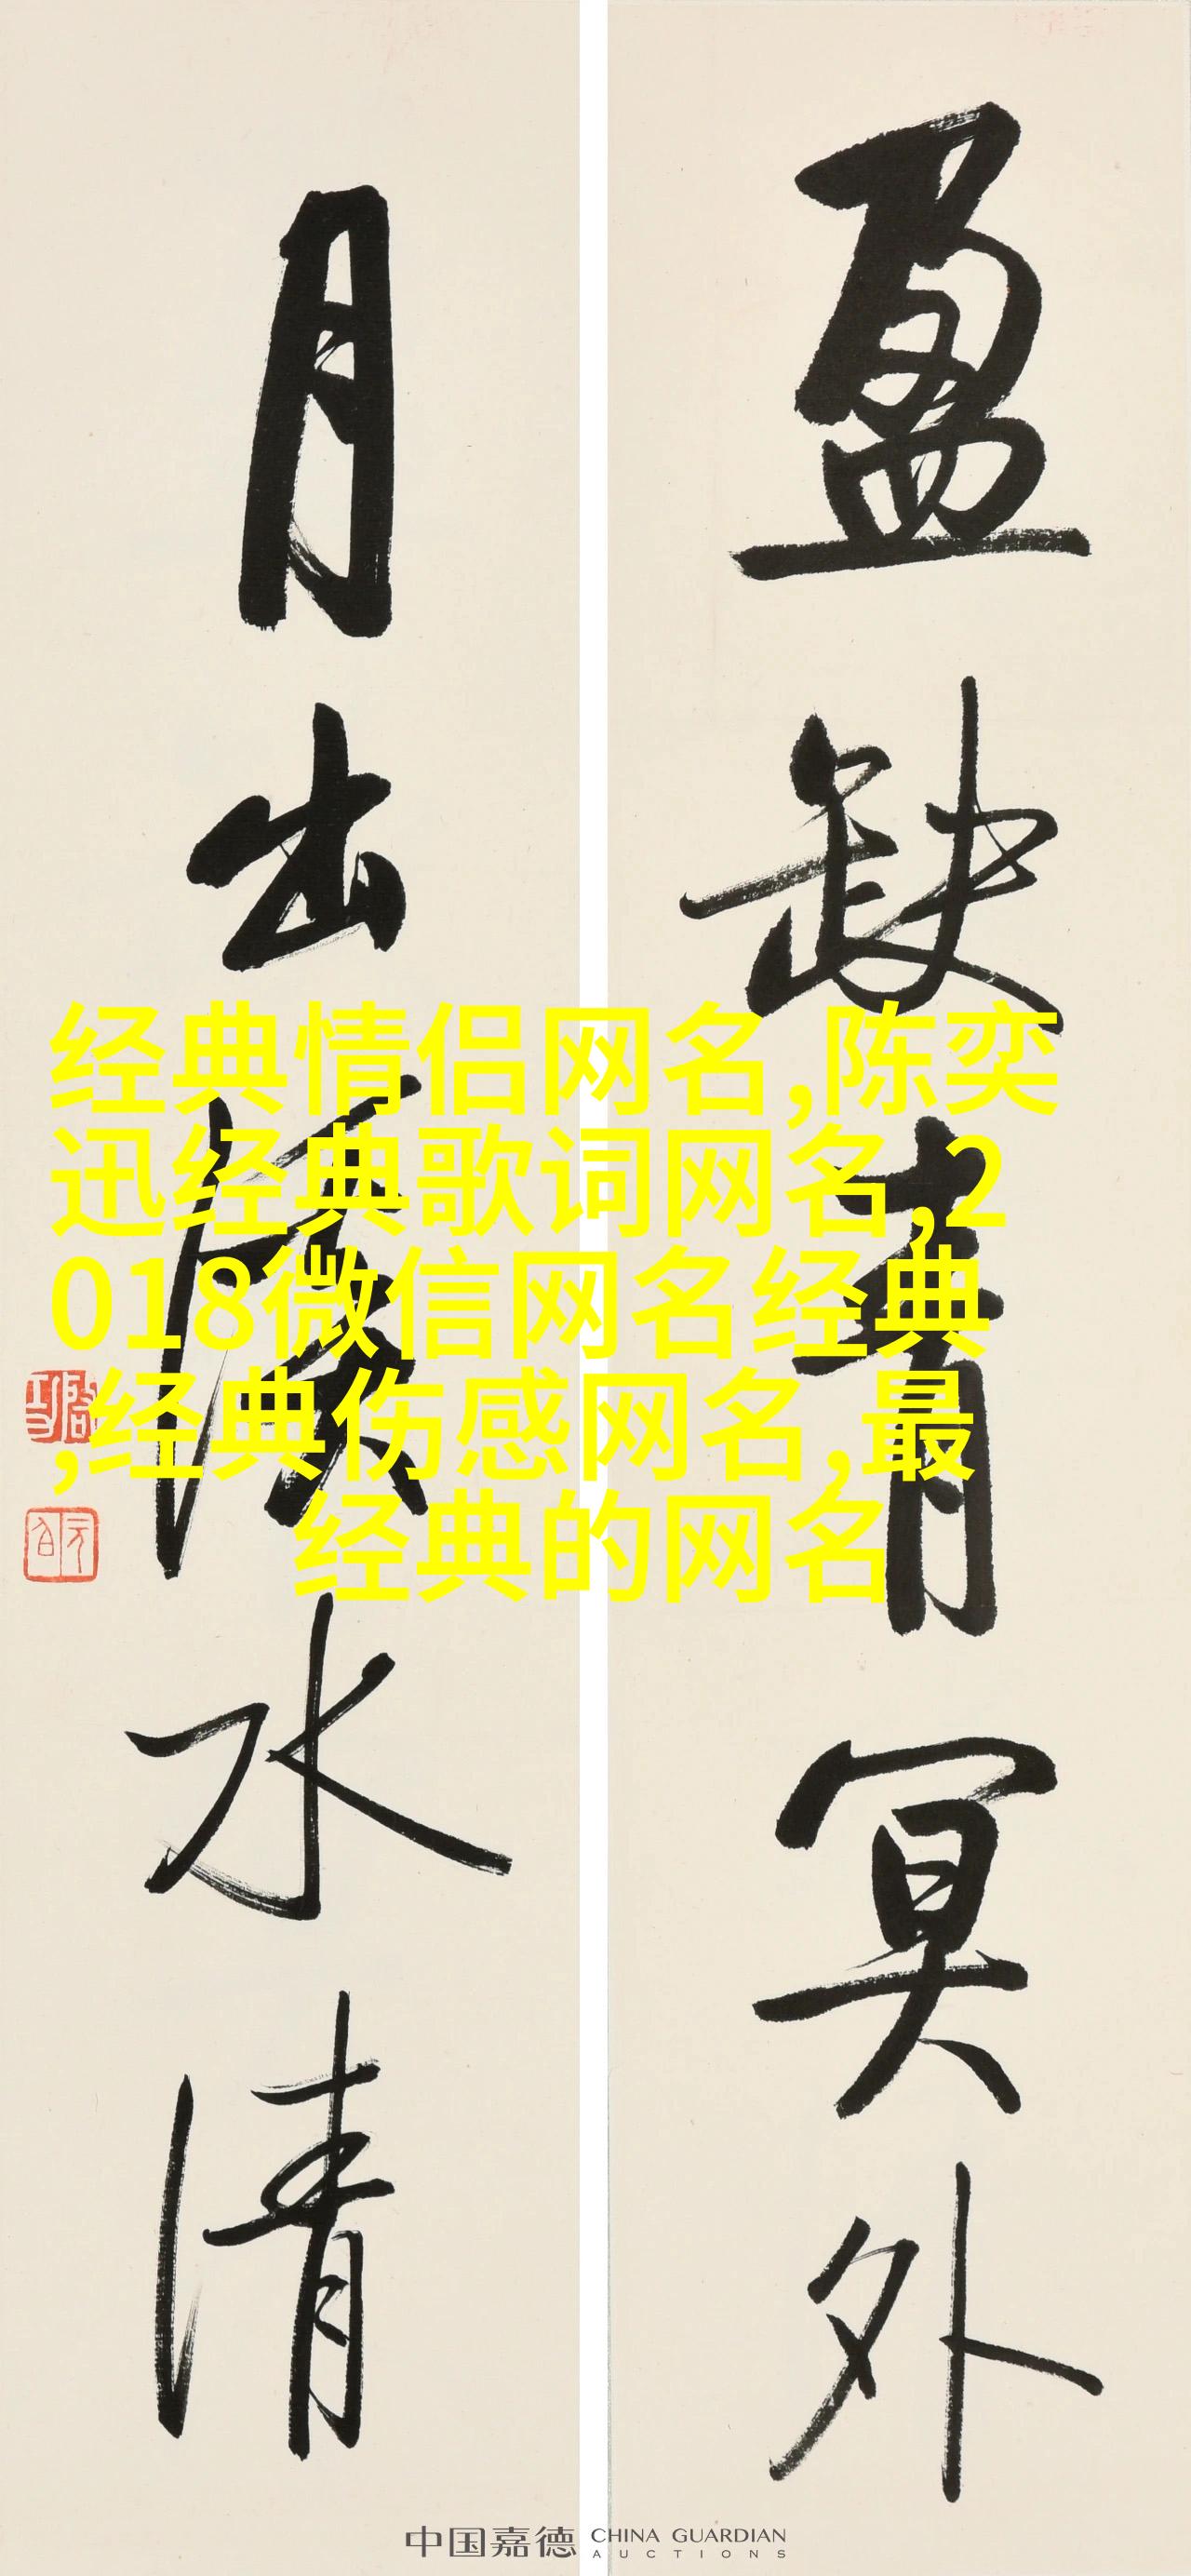 盈缺青冥外
月出溪水清
经典情侣网名,陈奕
迅经典歌词网名,2
018微信网名经典
,经典伤感网名,最
经典的网名
中国嘉德 CHINA GUARDIAN
AUCTIONS